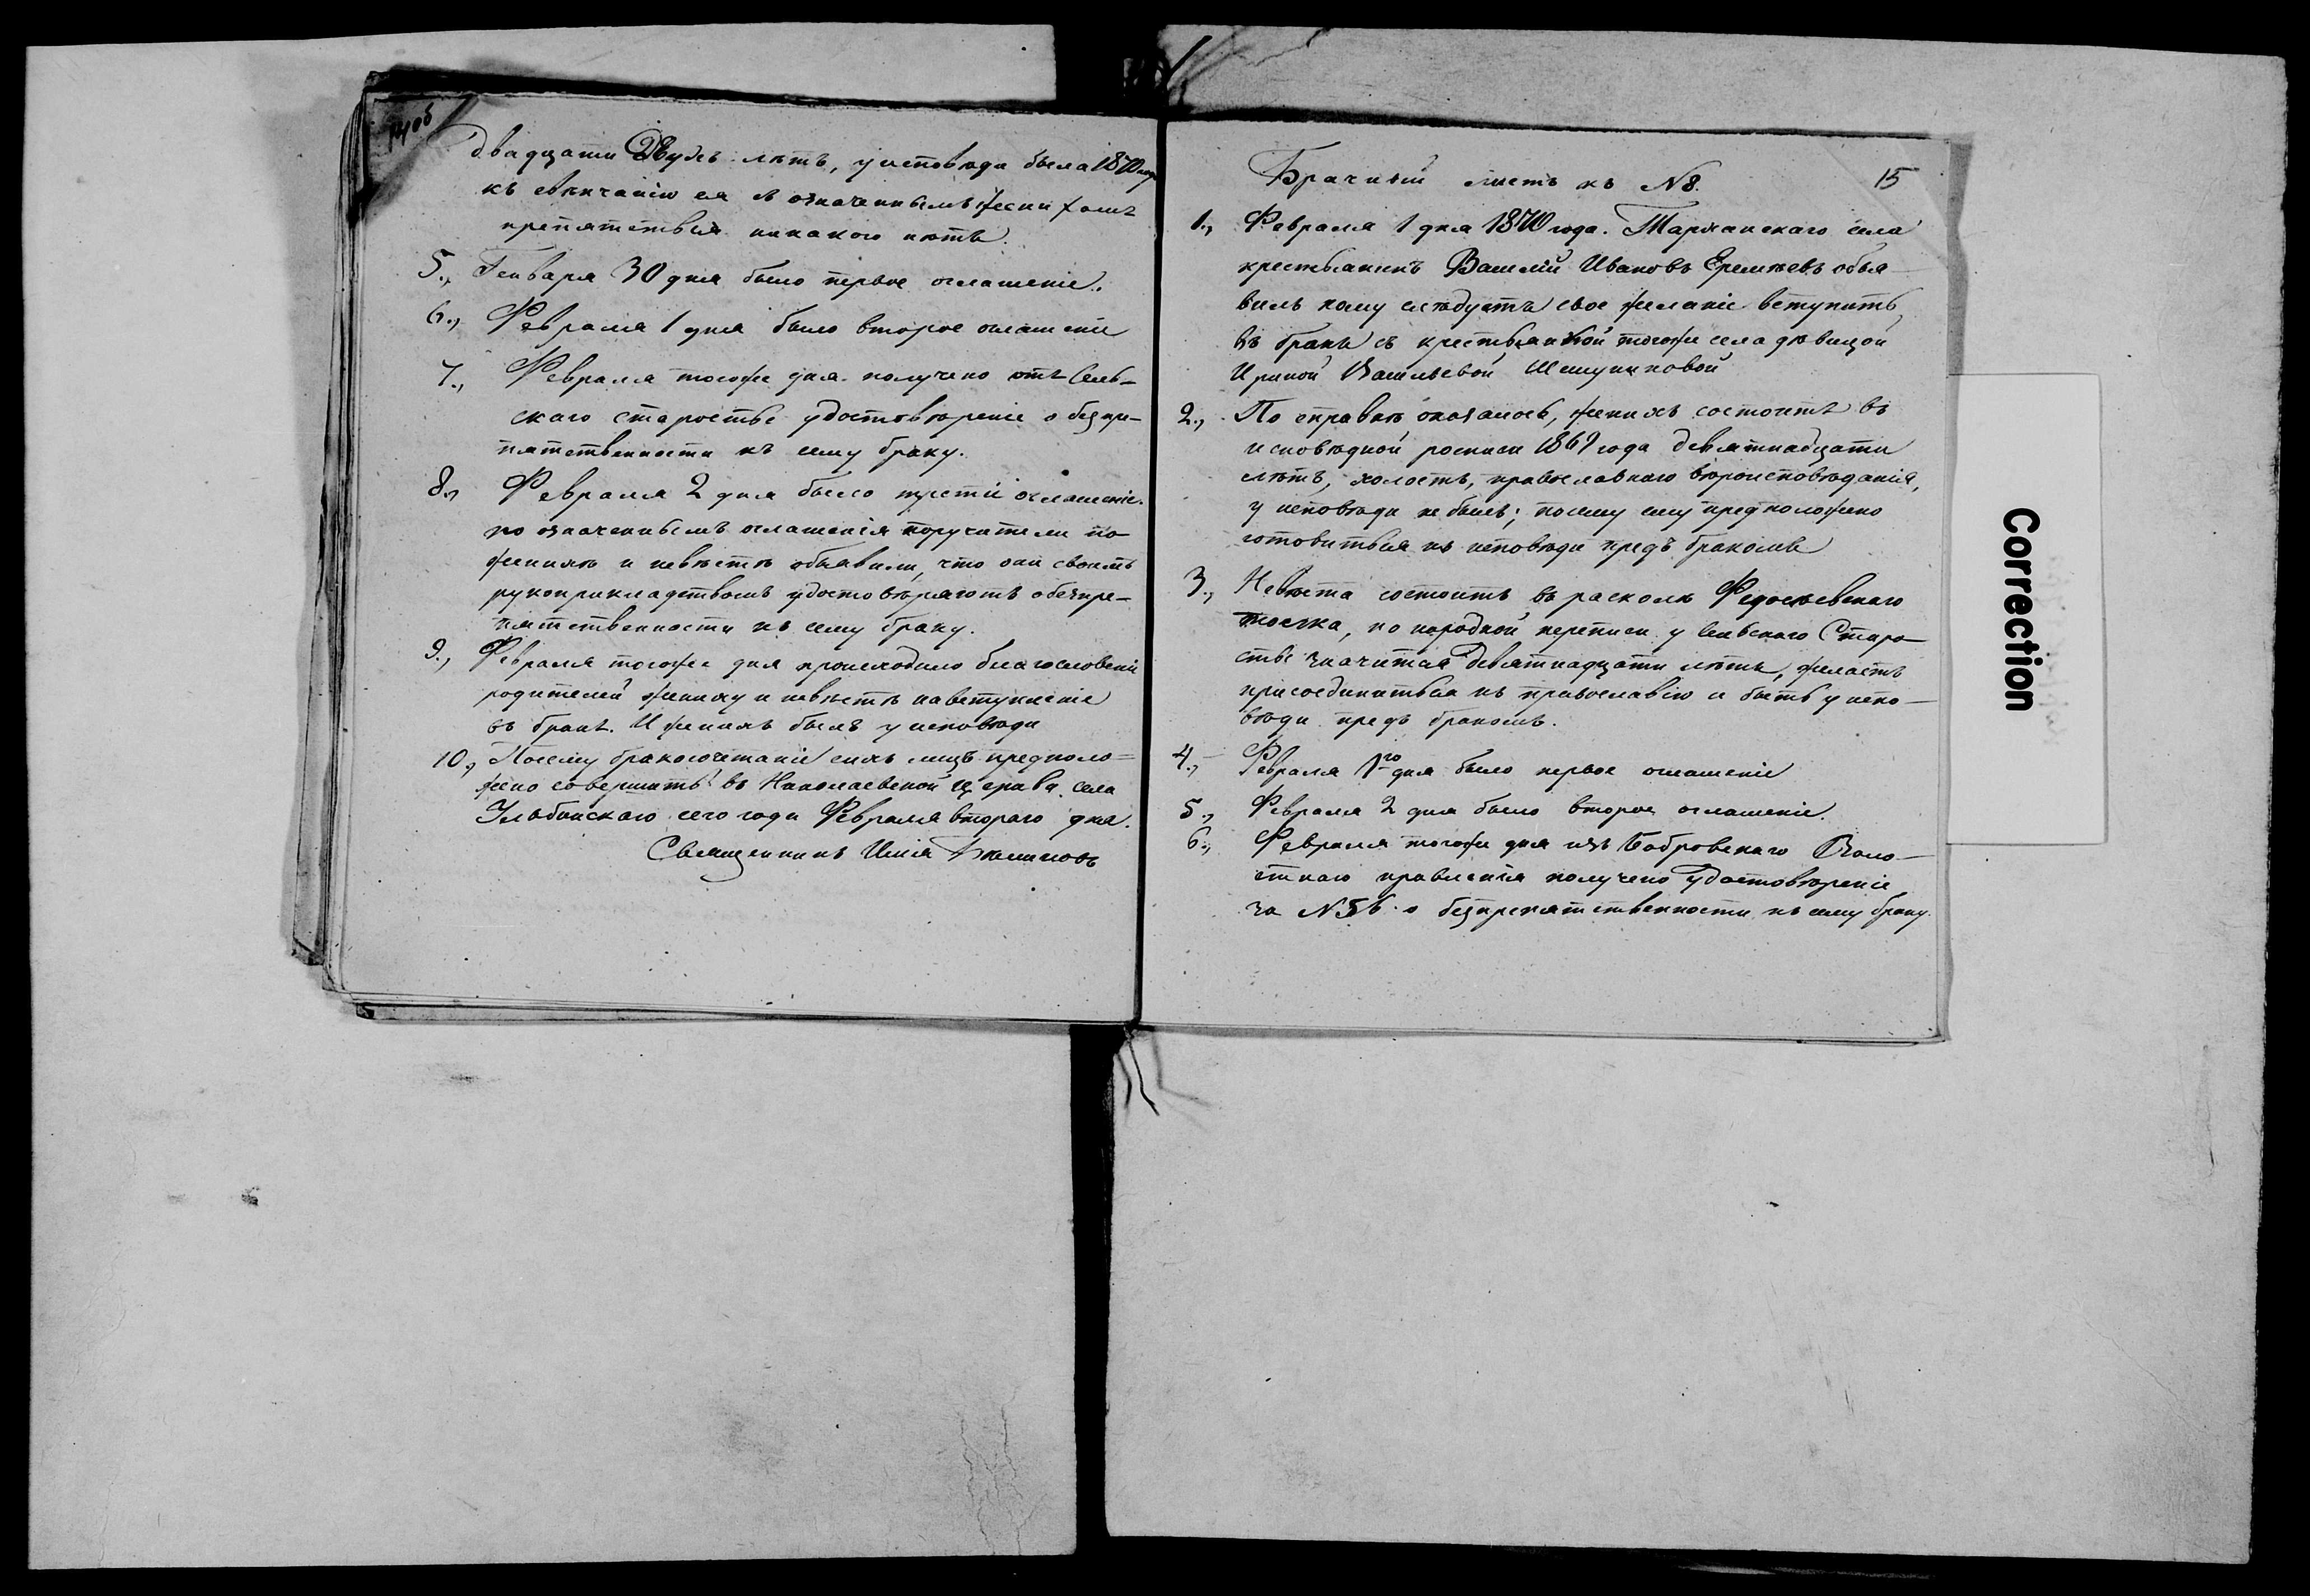 14об
двадцати Двухъ лѣтъ, у исповѣди была 1870 года
къ свѣнчанію ея съ означеннымъ женихомъ
препятствія никакого нѣтъ.
5., Генваря 30 дня было первое оглашеніе.
6., Февраля 1 дня было второе оглашеніе
7., Февраля тогоже дня получено отъ Сель-
скаго старосты удостовѣреніе о безпре-
пятственности къ сему браку.
8., Февраля 2 дня было третіе оглашеніе.
по означеннымъ оглашенія поручители по
женихѣ и невѣстѣ объявили, что они своимъ
рукоприкладствомъ удостовѣряютъ о безпре-
пятственности къ сему браку.
9., Февраля тогоже дня происходило благословеніе
родителей жениху и невѣстѣ на вступленіе
въ бракъ. И женихъ былъ у исповѣди
10., Посему бракосочетаніе сихъ лицъ предполо=
жено совершить въ Николаевской церкви села
Ульбинскаго сего года Февраля втораго дня.
Священникъ Илія
Брачный листъ къ № 8.
15
1., Февраля 1 дня 1870 года. Тарханскаго села
крестьянинъ Василій Ивановъ Еремѣевъ объя-
вилъ кому слѣдуетъ свое желаніе вступить
въ бракъ съ крестьянкой тогоже села дѣвицой
Ириной Васильевой Шемуниковой
2., По справкѣ оказалось, женихъ состоитъ въ
исповѣдной росписи 1869 года девятнадцати
лѣтъ, холостъ, православнаго вѣроисповѣданія,
у исповѣди не былъ; посему ему предположено
готовиться къ исповѣди предъ бракомъ
3., Невѣста состоитъ въ расколѣ Федосѣевскаго
толка, по народной переписи у Сельскаго Старо-
сты значится Девятнадцати лѣтъ, желаетъ
присоединиться къ православію и быть у испо-
вѣди предъ бракомъ.
4., Февраля 1го дня было первое оглашеніе
5., Февраля 2 дня было второе оглашеніе.
6., Февраля тогоже дня изъ Бобровскаго Воло-
стнаго правленія получено Удостовѣреніе
за № 56 о безпрепятственности къ сему браку.
Correction